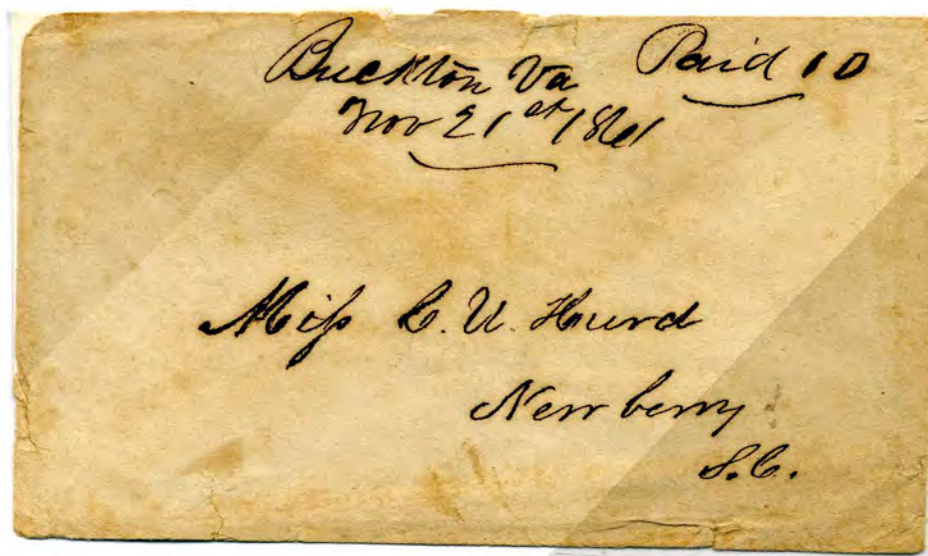 Buckton Va Paid 10
Nov 21st 1861
Miss C. U. Hurd
Newberry
S.C.